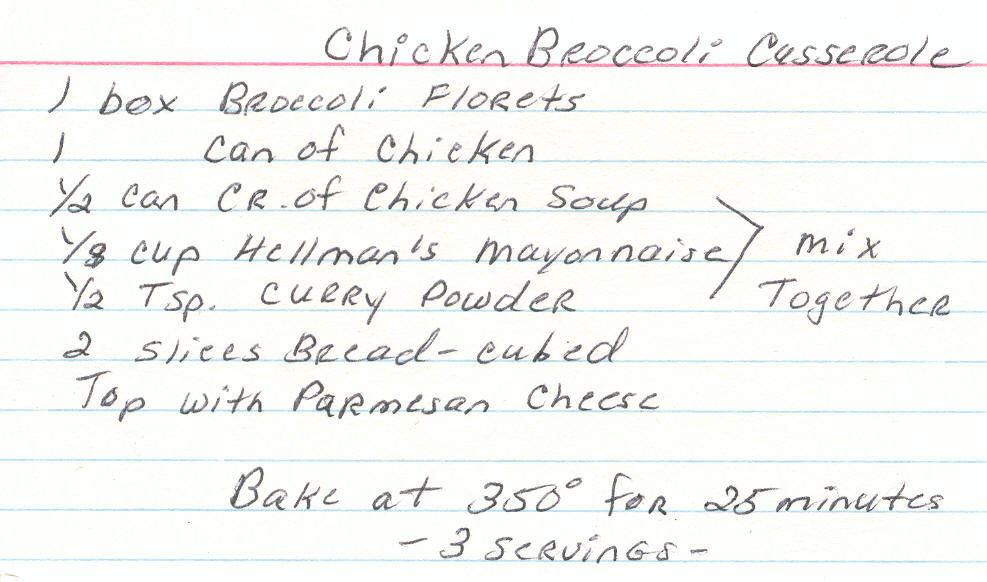 Chicken Broccoli Casserole
1 box Broccoli Florets
1 can of Chicken
1/2 can CR. of Chicken Soup
1/8 cup Hellman's mayonnaise
1/2 Tsp. CURRY Powder
mix
Together
2 slices Bread - cubed
Top with Parmesan Cheese
Bake at 350° for 25 minutes
- 3 Servings -